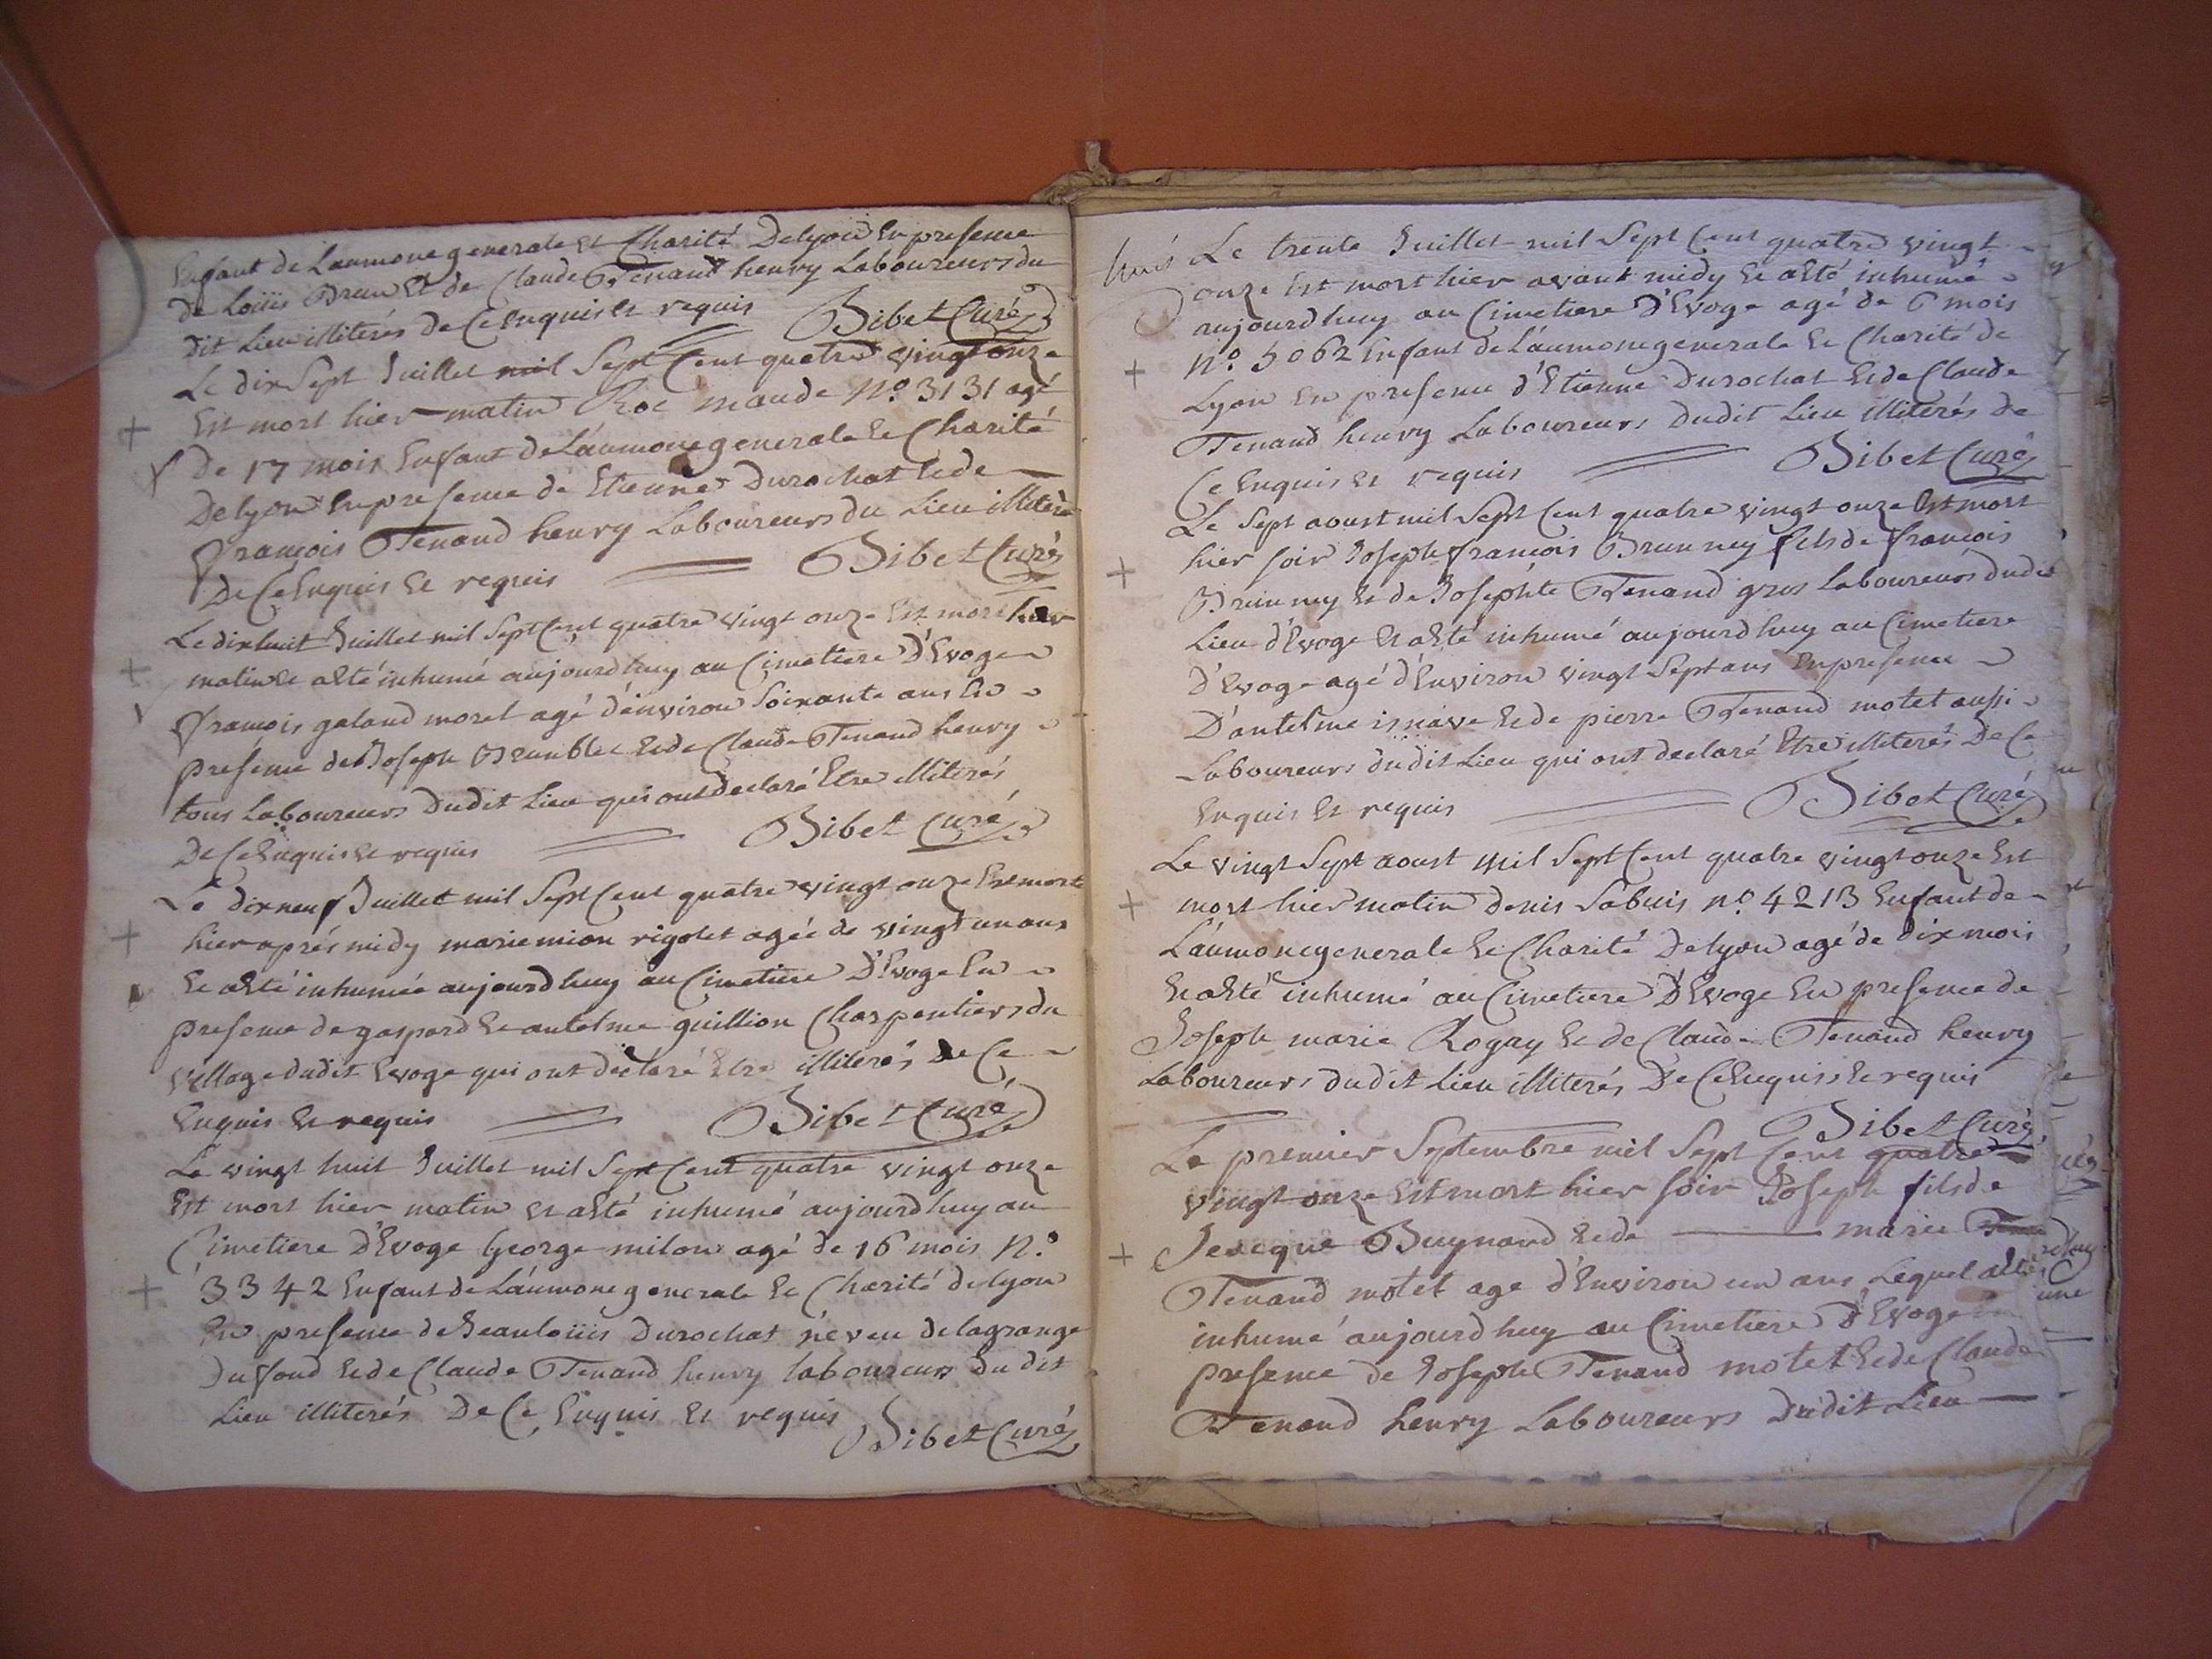 Enfant de Laumone generale et Charité Delyon En presence
de Loüis Brun Et de Claude Tenand henry Laboureurs du
dit Lieu illiterés de Ce Enquis et requis Bibet Curé
Le dix Sept Juillet mil Sept Cent quatre vingt onze
Est mort hier matin Roc maude N° 3131 agé
De 17 mois Enfant de L'aumone generale et Charité
Delyon En presence de Etienne Durochat et de
François Tenand henry Laboureurs du Lieu illiterés
De Ce Enquis et requis Bibet Curé
Le dixhuit Juillet mil Sept Cent quatre vingt onze Est mort hier
matin et a Eté inhumé aujourdhuy au Cimetiere D'Evoge
François galand morel agé d'environ Soixante ans En
presence de Joseph Et de Claude Tenand henry
tous Laboureurs Dudit Lieu qui ont declaré Etre illiterés
De Ce Enquis et requis Bibet Curé
Le dix neuf Juillet mil Sept Cent quatre vingt onze Est morte
hier aprés midy marie mion rigolet agée de vingt un ans
et a Eté inhumée aujourdhuy au Cimetiere D'Evoge En
presence de gaspard et antelme guillion Charpentiers du
village dudit Evoge qui ont declaré Etre illiterés de Ce
Enquis et requis Bibet Curé
Le vingt huit Juillet mil Sept Cent quatre vingt onze
Est mort hier matin et a Eté inhumé aujourdhuy au
Cimetiere D'Evoge George milon agé de 16 mois N.°
3342 Enfant de L'aumone generale et Charité de lyon
En presence de Jeanloüis Durochat neveu de lagrange
Dufond et de Claude Tenand henry laboureurs du dit
Lieu illiterés De Ce Enquis et requis
Bibet Curé
Le trente Juillet mil Sept Cent quatre vingt
onze Est mort hier avant midy et a Eté inhumé
aujourdhuy au Cimetiere D'Evoge agé de 6 mois
N.° 5062 Enfant de L'aumone generale et Charité de
Lyon En presence d'Etienne Durochat et de Claude
Tenand henry Laboureurs Dudit Lieu illiterés de
Ce Enquis et requis Bibet Curé
Le Sept aoust mil Sept Cent quatre vingt onze Est mort
hier soir Joseph françois Brun ney fils de françois
Brun ney et de Josephte Tenand gros Laboureurs dudit
Lieu d'Evoge et a Eté inhumé aujourdhuy au Cimetiere
d'Evoge agé d'Environ vingt Sept ans En presence
D'antelme et de pierre Tenand motet aussi
Laboureurs dudit Lieu qui ont declaré Etre illiterés De Ce
Enquis et requis Bibet Curé
Le vingt Sept aoust mil Sept Cent quatre vingt onze Est
mort hier matin denis Sabuis n° 4213 Enfant de
L'aumone generale et Charité Delyon agé de dix mois
et a Eté inhumé au Cimetiere D'Evoge En presence de
Joseph marie Rogay et de Claude Tenand henry
Laboureurs dudit Lieu illiterés De Ce Enquis et requis
Bibet Curé
Le premier Septembre mil Sept Cent quatre
vingt onze Est mort hier soir Joseph fils de
Jeacque Buynand et de marie
Tenand motet agé d'Environ un ans Lequel a Eté
inhumé aujourdhuy au Cimetiere D'Evoge
presence de Joseph Tenand motet et de Claude
Tenand henry Laboureurs Dudit Lieu